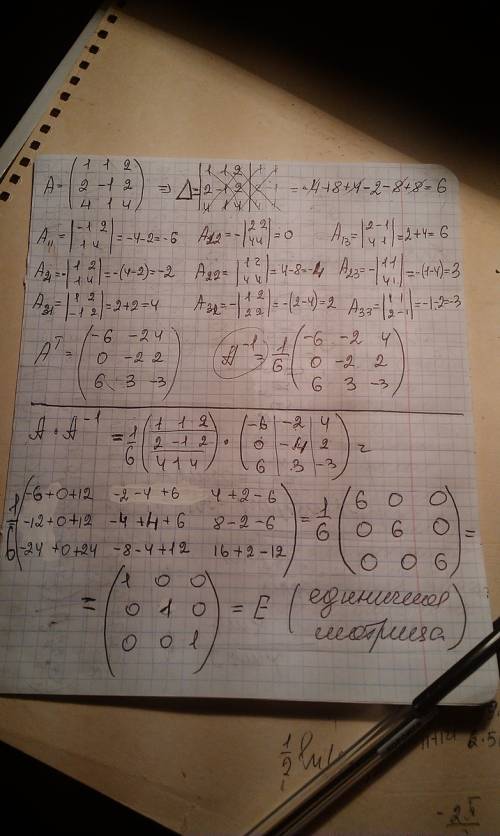 A = (1 1 2; 2 -1 2; 4 1 4) ⇒ Δ = |1 1 2; 2 -1 2; 4 1 4| = -4+8+4-2-8+8=6
A11 = |-1 2; 1 4| = -4-2=-6 A12 = -|2 2; 4 4| = 0 A13 = |2 -1; 4 1| = 2+4=6
A21 = -|1 2; 1 4| = -(4-2)=-2 A22 = |1 2; 4 4| = 4-8=-4 A23 = -|1 1; 4 1| = -(1-4)=3
A31 = |1 2; -1 2| = 2+2=4 A32 = -|1 2; 2 2| = -(2-4)=2 A33 = |1 1; 2 -1| = -1-2=-3
A^T = (-6 -2 4; 0 -2 2; 6 3 -3) A^-1 = 1/6 (-6 -2 4; 0 -2 2; 6 3 -3)
A · A^-1 = 1/6 (1 1 2; 2 -1 2; 4 1 4) · (-6 -2 4; 0 -4 2; 6 3 -3) =
1/6 (-6+0+12 -2-4+6 4+2-6
-12+0+12 -4+4+6 8-2-6
-24+0+24 -8-4+12 16+2-12) = 1/6 (6 0 0; 0 6 0; 0 0 6) =
= (1 0 0; 0 1 0; 0 0 1) = E (единичная
матрица)